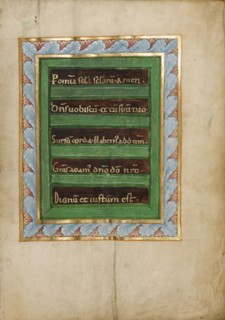 P om̄a scl̄a scl̄orū. Amen.
Dn̄s uobiscū. et cū sp̄u tuo
Sursū corda. Habem' ad dn̄m.
Gr̄as agam' dn̄o dō nr̄o.
Dignū et iustum est.